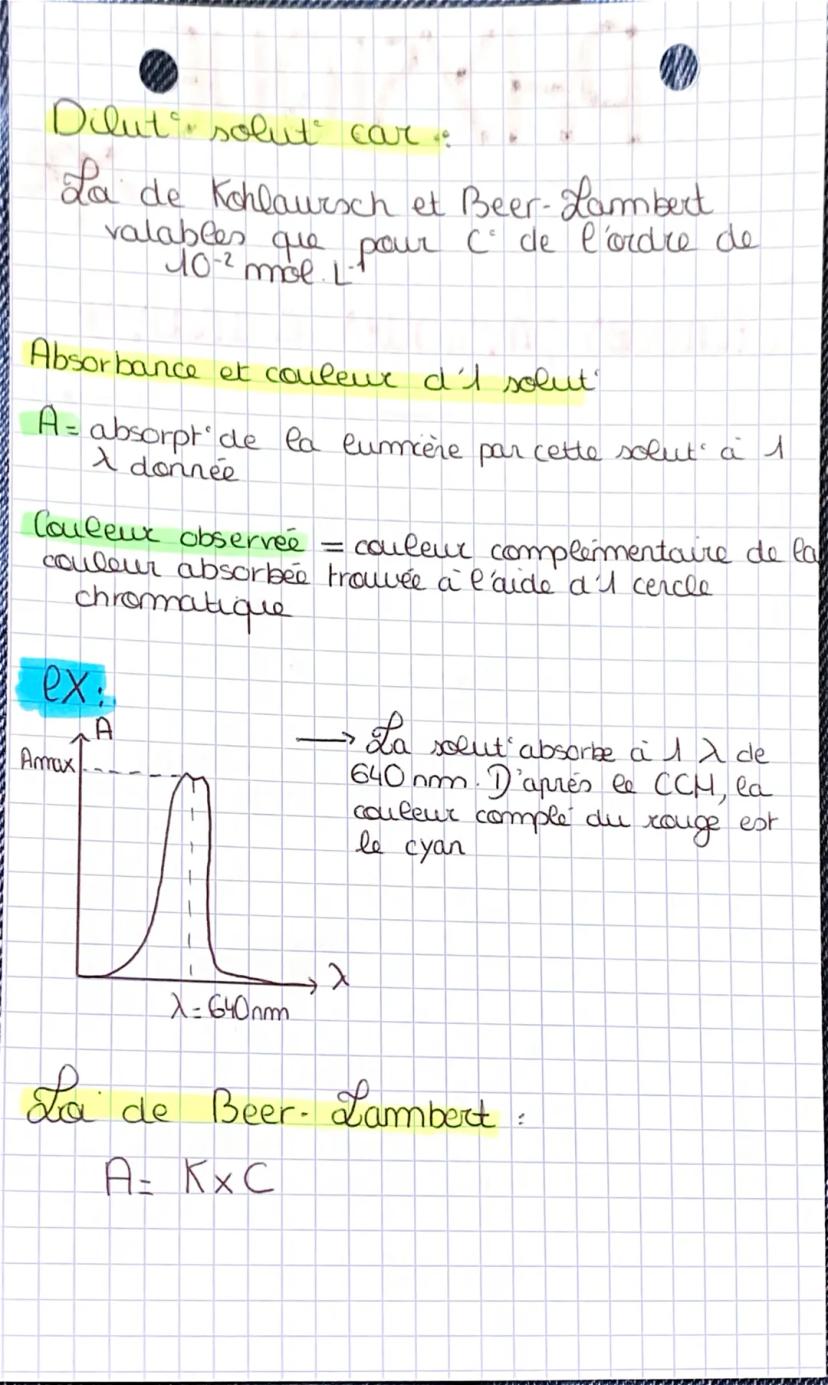 Dilut° solut° car :
Loi de Kohlaursch et Beer-Lambert
valables que pour C° de l'ordre de
10⁻² mol.L⁻¹
Absorbance et couleur d'1 solut°
A = absorpt° de la lumière par cette solut° à 1
λ donnée
Couleur observée = couleur complémentaire de la
couleur absorbée trouvée à l'aide d'1 cercle
chromatique
ex :
A
Amax
→ La solut° absorbe à 1 λ de
640 nm. D'après le CCH, la
couleur complé du rouge est
le cyan
λ
λ = 640nm
Loi de Beer-Lambert :
A = K x C